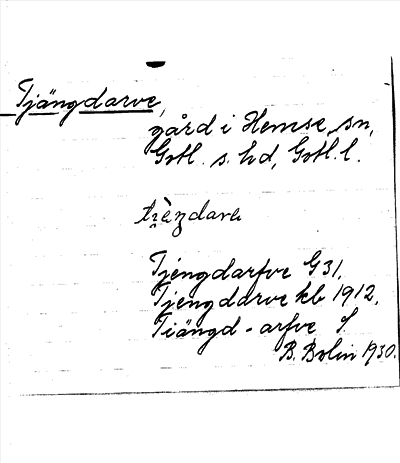 Tjängdarve,
gård i Hemse sn,
Gotl. s. hd, Gotl. l.
Tjengdarfve G31.
Tjengdarve kb 1912.
Tiängd-arfve S.
B. Bolin 1930.